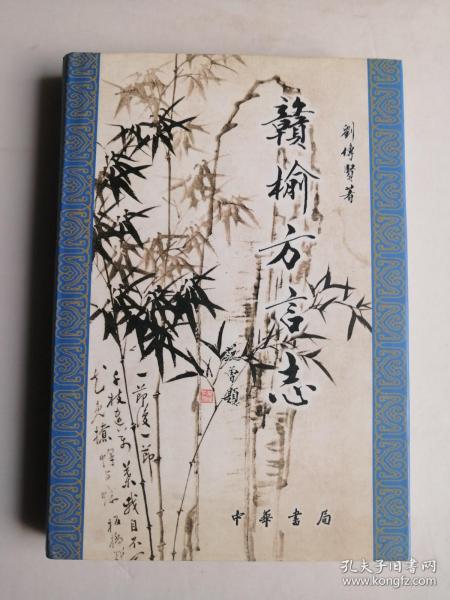 劉傳賢著
贛榆方言志
一節復一節
千枝攢萬葉我自不
中華書局
孔夫子旧书网
www.kongfz.com